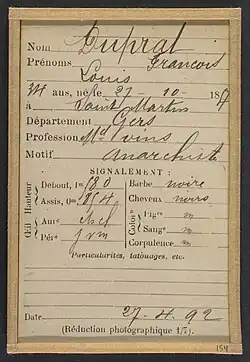 Nom Dupral
Prénoms Louis Francois
34 ans, né le 27-10-187
à Saint Martin
Département Gers
Profession Md vins
Motif Anarchiste
SIGNALEMENT :
Hauteur
Debout, 1m 80
Assis, 0m 854
Barbe noire
Cheveux noirs
Œil
Aule
Péro
Color
Pigre m
Sangn m
Corpulence m
Particularités, tatouages, etc.
Date 27-4.92
(Réduction photographique 1/7).
154